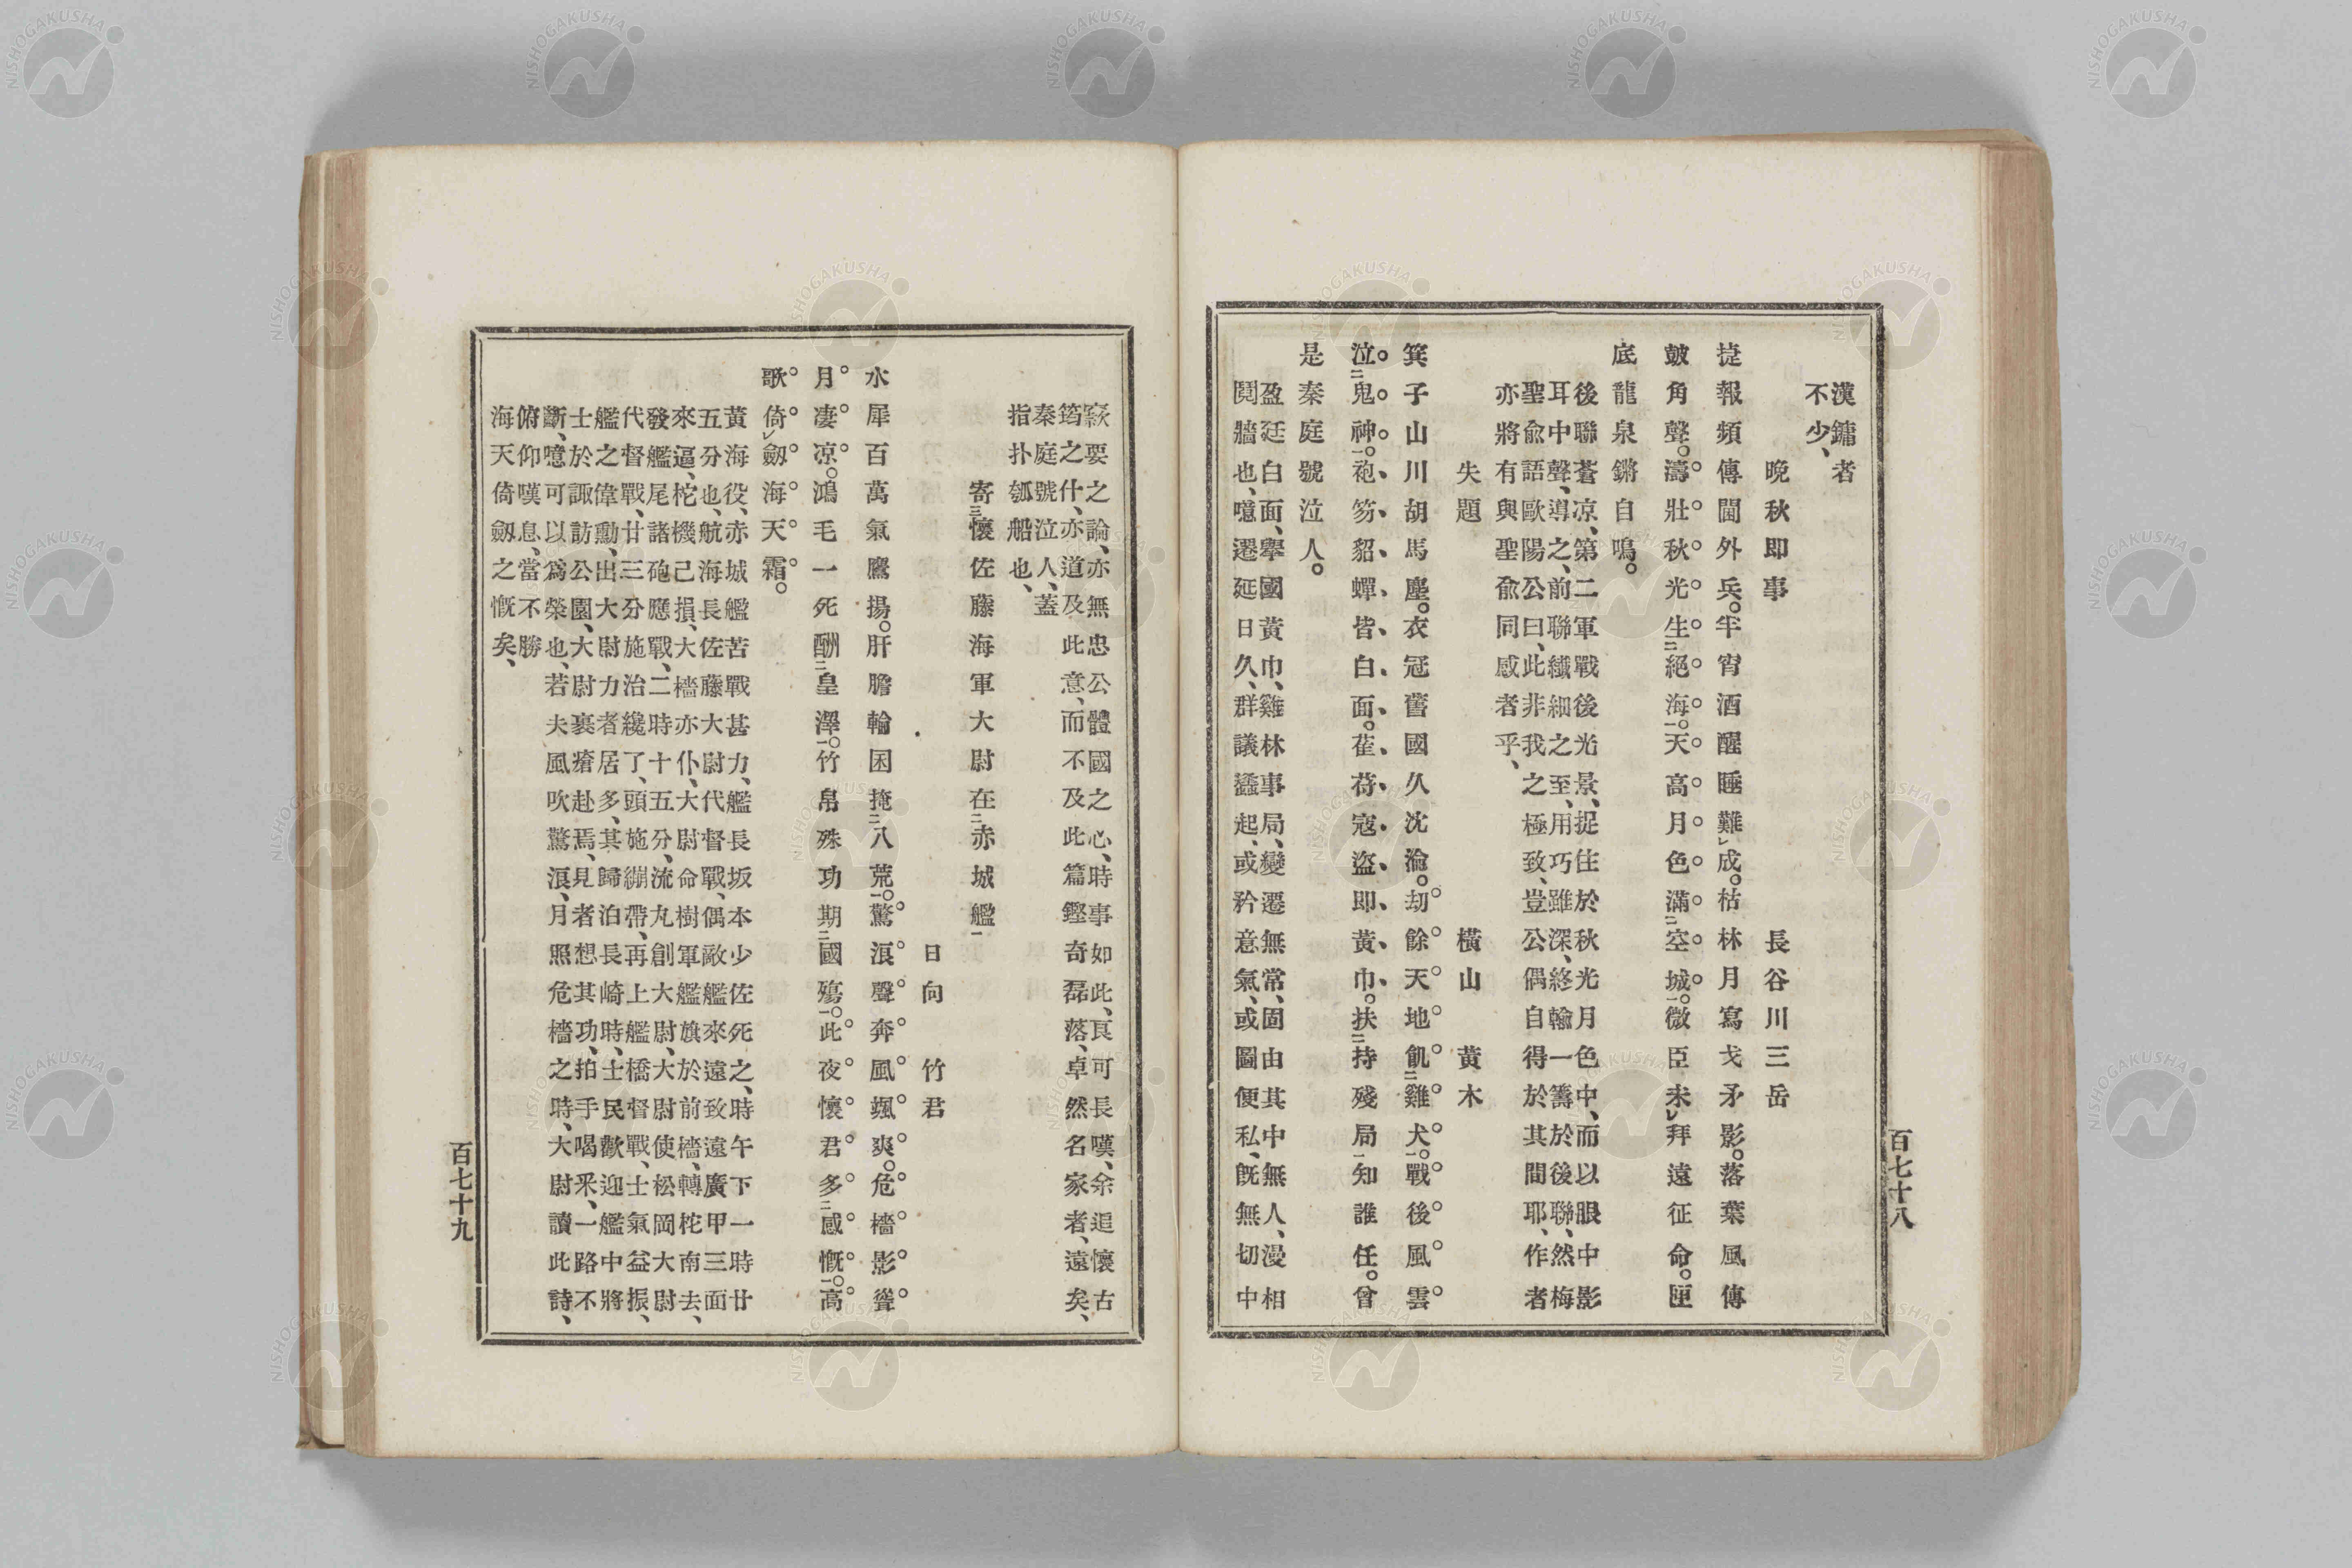 漢鏞者
不少、
晩秋即事　長谷川三岳
捷報頻傳閫外兵。牢宵酒醒睡難レ成。枯林月寫戈矛影。落葉風傳
皷角聲。濤壯秋光生二絕海一。天高月色滿二空城一。微臣未レ拜遠征命。匣
底龍泉鏘自鳴。
後聯蒼凉、第二軍戰後光景、捉住於秋光月色中、而以眼中影
耳中聲、導之、前聯纎細之至、用巧雖深、終輸一籌於後聯、然梅
聖兪語歐陽公曰、此非我之極致、豈公偶自得於其間耶、作者
亦將有與聖兪同感者乎、
失題　橫山黄木
箕子山川胡馬塵。衣冠舊國久沈淪。劫餘天地飢二雞犬一。戰後風雲
泣二鬼神一。袍笏貂蟬皆白面。萑苻寇盜即黄巾。扶二持殘局一知誰任。曾
是秦庭號泣人。
盈廷白面、擧國黃巾、雞林事局、變遷無常、固由其中無人、漫相
鬩牆也、噫遷延日久、群議蠭起、或矜意氣、或圖便私、旣無切中
百七十八
窾要之論、亦無忠公體國之心、時事如此、亙可長嘆、余追懷古
筠之什、亦道及此意、而不及此篇鏗奇磊落、卓然名家者、遠矣、
秦庭號泣人、蓋
指扑瓠船也、
寄三懷佐藤海軍大尉在二赤城艦一
日向　竹君
水犀百萬氣鷹揚。肝膽輪囷掩二八荒一。驚浪聲奔風颯爽。危檣影聳
月凄凉。鴻毛一死酬二皇澤一。竹帛殊功期二國殤一。此夜懷君多二感慨一。高
歌倚レ劔海天霜。
黃海役、赤城艦苦戰甚力、艦長坂本少佐死之、時午下一時廿
五分也、航海長佐藤大尉代督戰、偶敵艦來遠致遠廣甲三面
來逼、柁機己損、大檣亦仆、大尉命樹軍艦旗於前檣、轉柁南去、
發艦尾諸砲應戰、二時十五分、流丸創大尉、大尉使松岡大尉
代督戰、廿三分施治纔了、頭施繃帶、再上艦橋督戰、士氣益振、
艦之偉勳、出大尉力者居多、其歸泊長崎時、士民歡迎艦中將
士於諏訪公園、大尉裹瘡赴焉、見者想其功、拍手喝釆、一路不
斷、噫可以爲榮也、若夫風吹驚浪、月照危檣之時、大尉讀此詩、
俯仰嘆息、當不勝
海天倚劔之慨矣、
百七十九
NISHOGAKUSHA